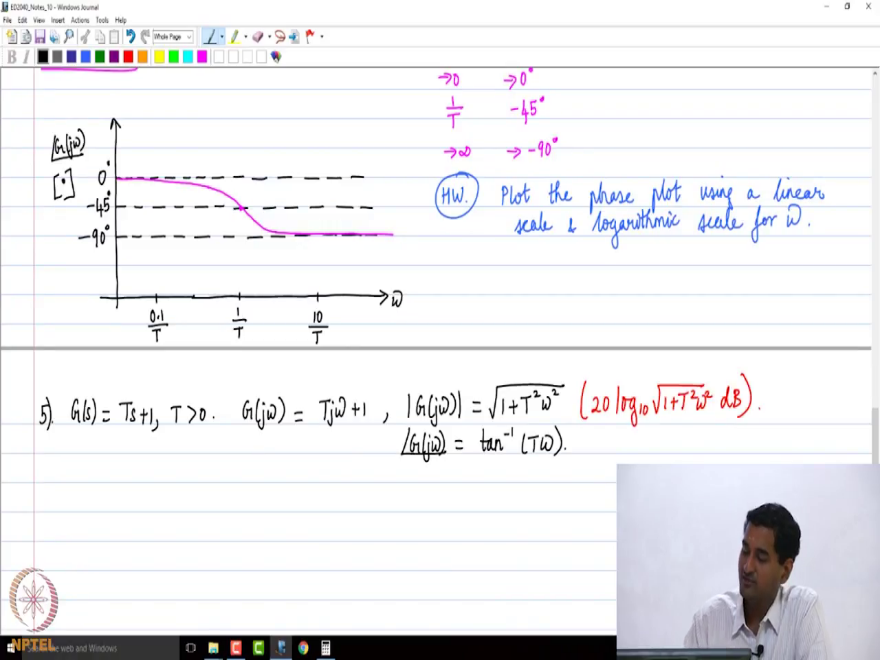 ED2040_Notes_10 - Windows Journal
File Edit View Insert Actions Tools Help
Whole Page
B I
→0 →0°
1/T -45°
→∞ →-90°
∠G(jω)
[°]
0°
-45°
-90°
0.1/T 1/T 10/T ω
HW. Plot the phase plot using a linear
scale & logarithmic scale for ω.
5). G(s) = Ts+1, T>0. G(jω) = Tjω+1, |G(jω)| = √1+T²ω² (20 log₁₀ √1+T²ω² dB).
∠G(jω) = tan⁻¹(Tω).
NPTEL
the web and Windows